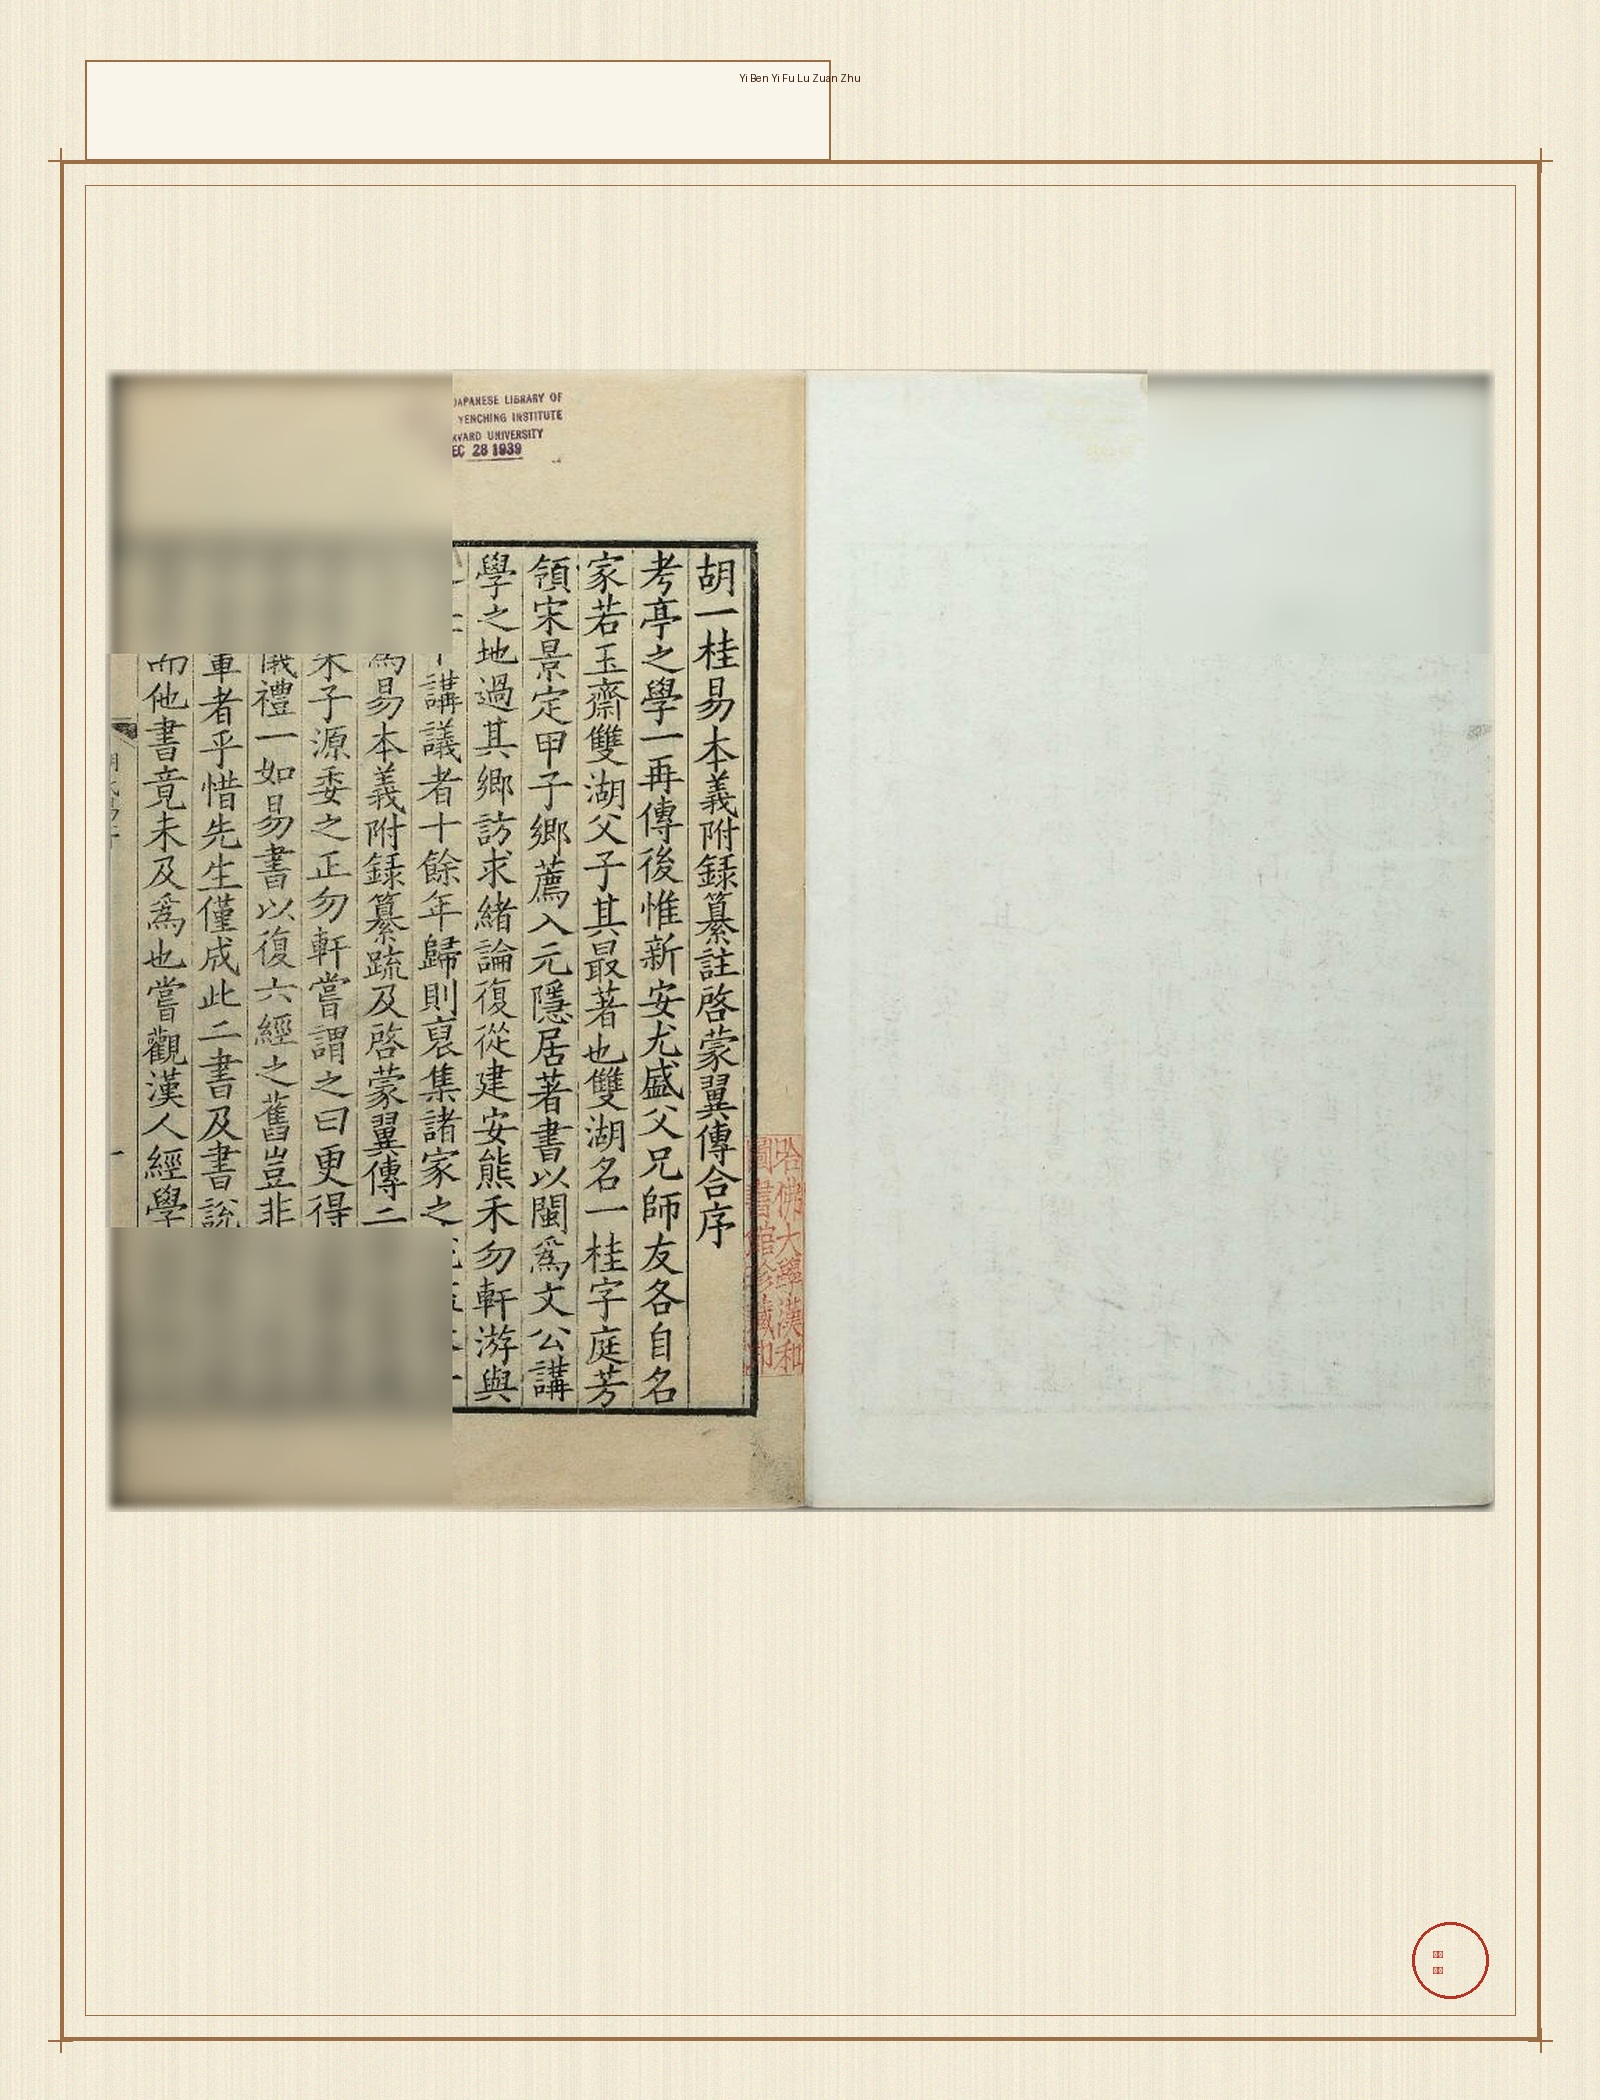 Yi Ben Yi Fu Lu Zuan Zhu
JAPANESE LIBRARY OF
YENCHING INSTITUTE
UNIVERSITY
28 1939
胡一桂易本義附録纂註啓蒙翼傳合序
考亭之學一再傳後惟新安尤盛父兄師友各自名
家若玉齋雙湖父子其最著也雙湖名一桂字庭芳
領宋景定甲子鄉薦入元隱居著書以閩爲文公講
學之地過其鄉訪求緒論復從建安熊禾勿軒游與
講議者十餘年歸則裒集諸家之
易本義附録纂疏及啓蒙翼傳二
子源委之正勿軒嘗謂之曰更得
禮一如易書以復六經之舊豈非
者乎惜先生僅成此二書及書說
他書竟未及爲也嘗觀漢人經學
一
哈佛大學漢和
圖書館珍藏印